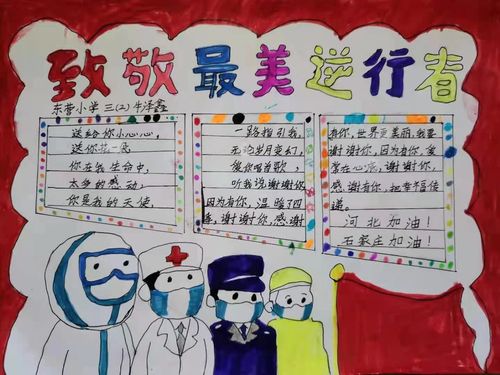 致敬最美逆行者
东营小学 三(2) 牛泽鑫
送给你小心心,
送你花一朵
你在我生命中,
太多的感动,
你是我的天使
一路指引我,
无论岁月变幻,
爱你唱首歌,
听我说谢谢你
因为有你,温暖了四
季,谢谢你,感谢
有你,世界更美丽,我要
谢谢你,因为有你,爱
常在心底,谢谢你,
感谢有你,把幸福传
递。
河北加油!
石家庄加油!